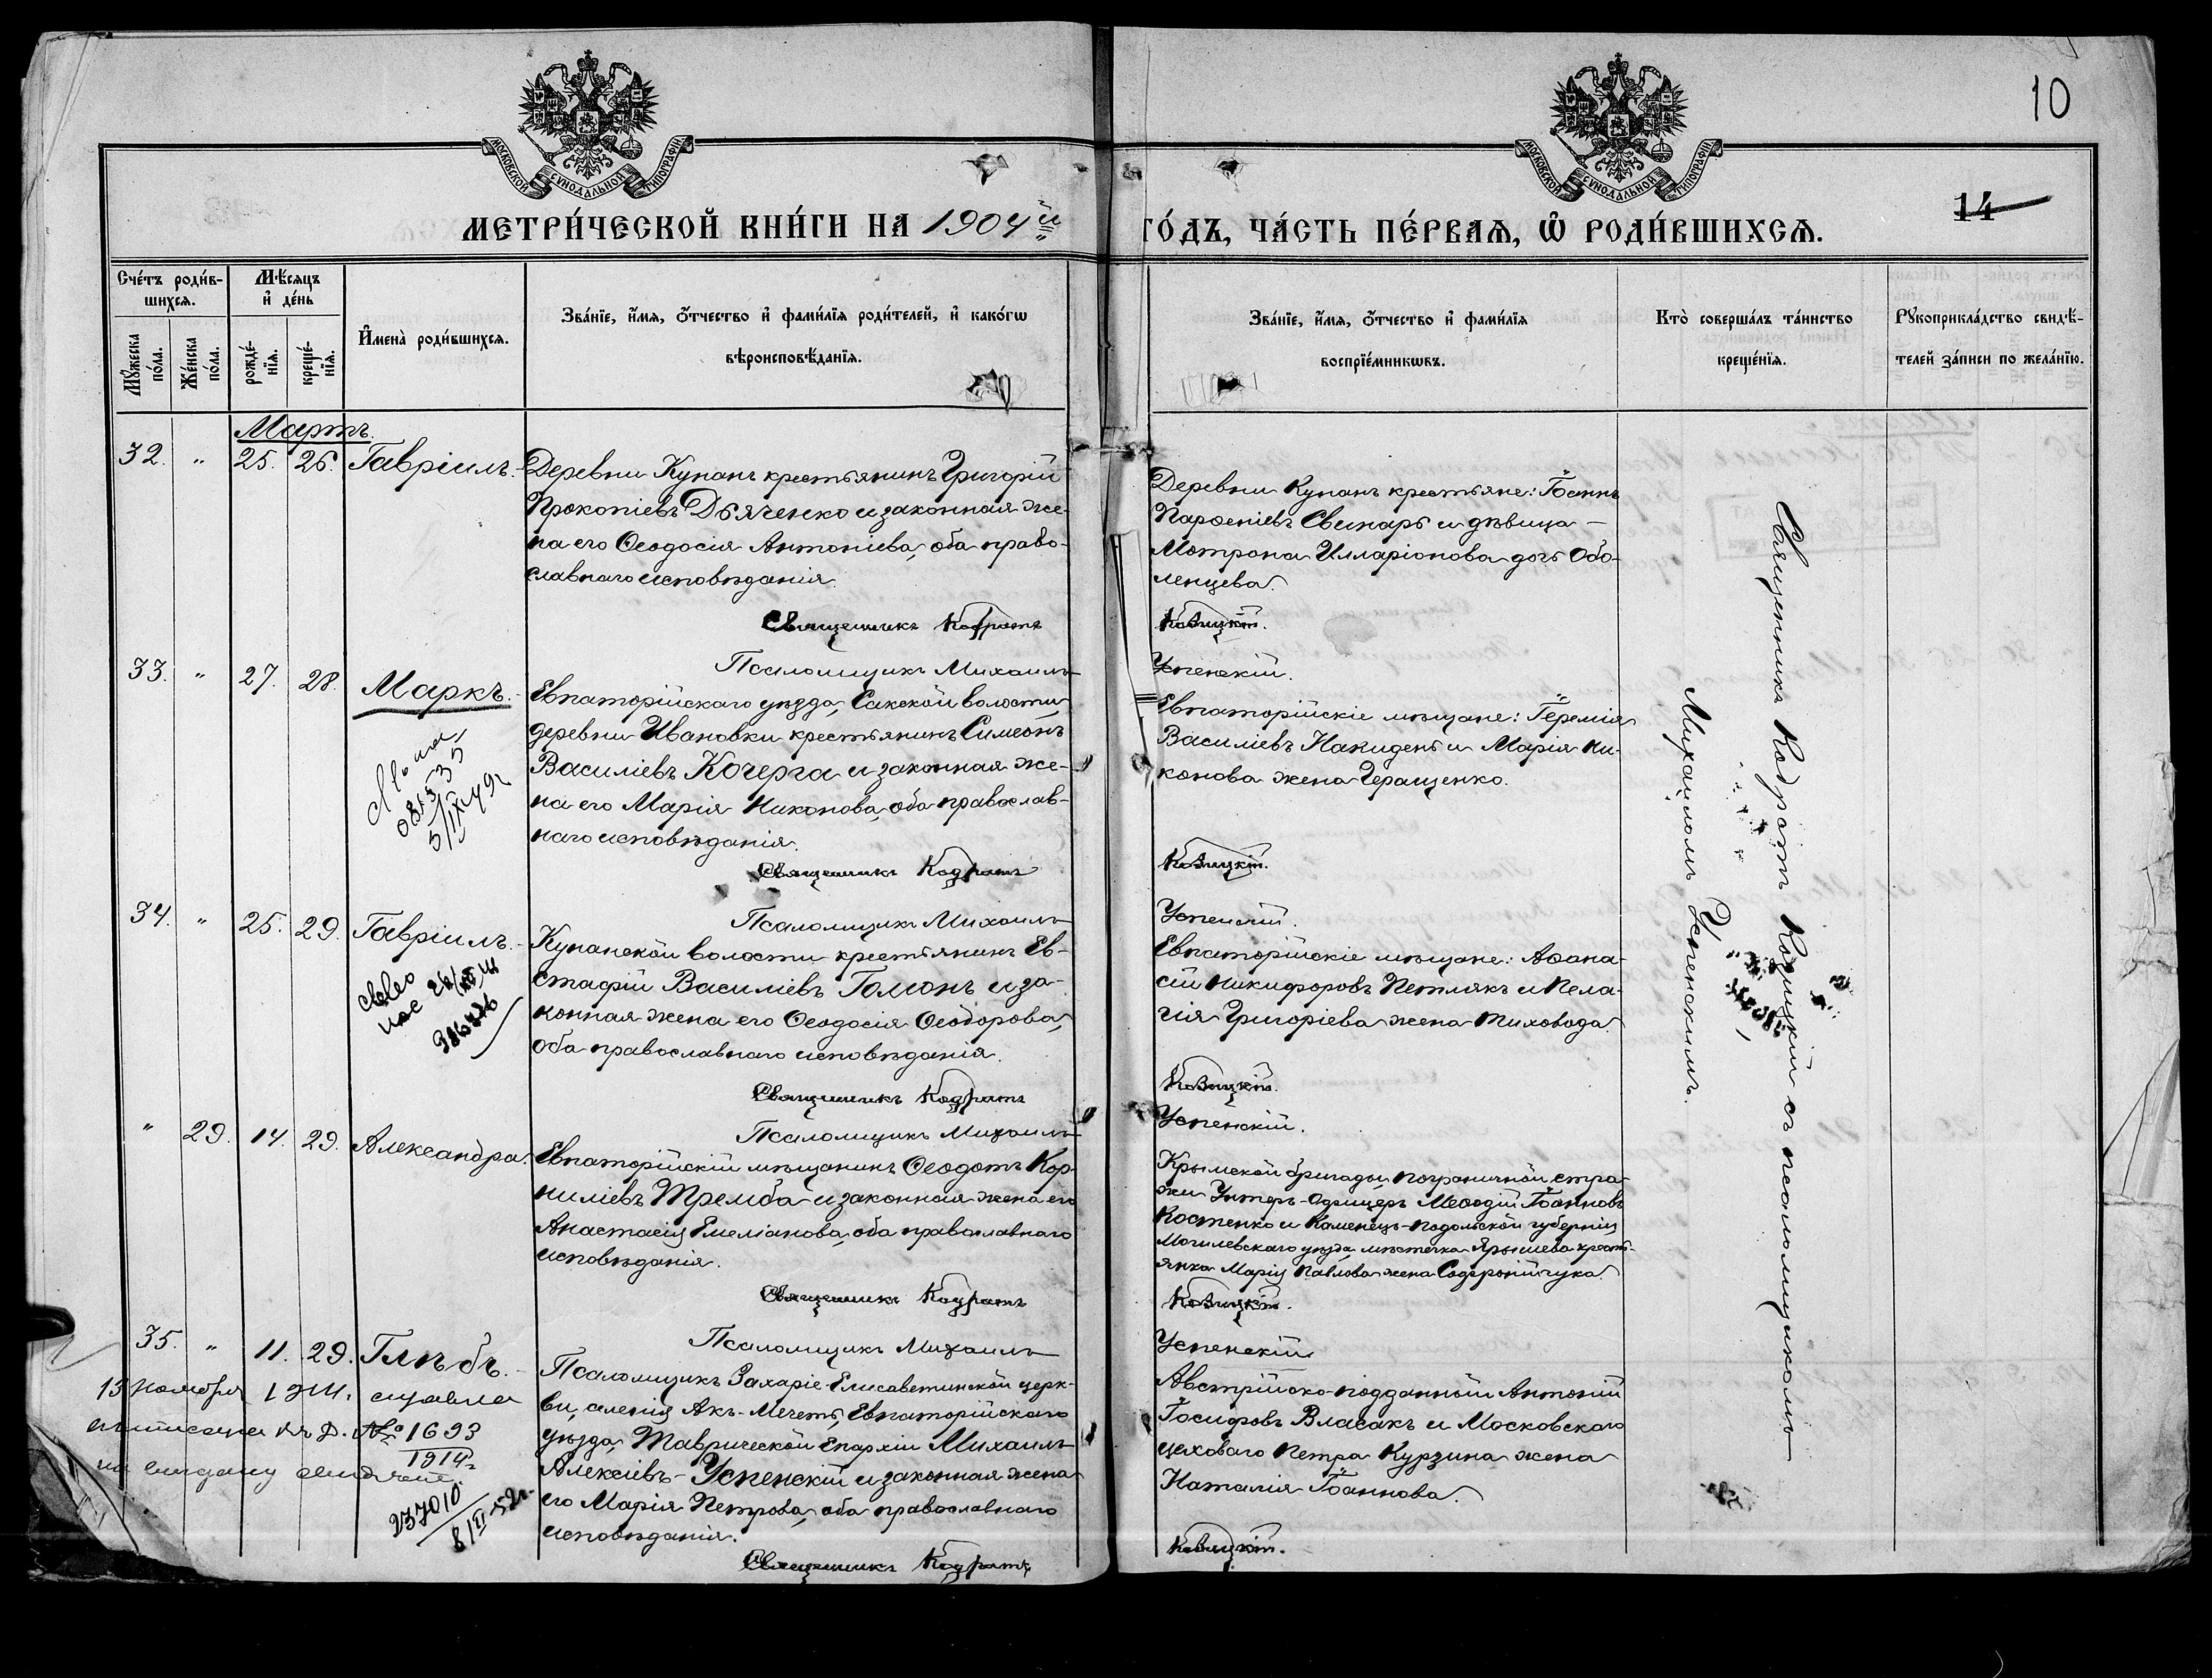 10
14
МОСКОВСКОЙ СУНОДАЛЬНОЙ ТИПОГРАФІИ
МОСКОВСКОЙ СУНОДАЛЬНОЙ ТИПОГРАФІИ
МЕТРИ́ЧЕСКОЙ КНИ́ГИ НА 1904й
ГО́ДЪ, ЧА́СТЬ ПЕ́РВАѦ, Ѡ҆ РОДИ́ВШИХСѦ.
Сче́тъ роди́в-
шихсѧ.
Мꙋ́жеска по́ла.
Же́нска по́ла.
Мѣ́сѧцъ
и҆ де́нь
рожде́-
нїѧ.
креще́-
нїѧ.
И҆мена̀ роди́вшихсѧ.
Зва́нїе, и҆́мѧ, о҆́тчество и҆ фами́лїѧ роди́телей, и҆ како́гѡ
вѣроисповѣ́данїѧ.
Зва́нїе, и҆́мѧ, о҆́тчество и҆ фами́лїѧ
воспрїе́мникѡвъ.
Кто̀ соверша́лъ та́инство
креще́нїѧ.
Рꙋкоприкла́дство свидѣ́-
телей за́писи по жела́нїю.
Мартъ.
32. " 25. 26. Гавріилъ.
Деревни Купанъ крестьянинъ Григорій
Прокопіевъ Дьяченко и законная же-
на его Ѳеодосія Антоніева, оба право-
славнаго исповѣданія.
Священникъ Кодратъ
Псаломщикъ Михаилъ
Деревни Купанъ крестьяне: Іоаннъ
Парѳеніевъ Свинарь и дѣвица
Мотрона Илларіонова дочь Обо-
ленцева.
Ковицкій.
Успенскій.
33. " 27. 28. Маркъ.
081535
5/IX 49г
Евпаторійскаго уѣзда, Сакской волости,
деревни Ивановки крестьянинъ Симеонъ
Василіевъ Кочерга и законная же-
на его Марія Никонова, оба православ-
наго исповѣданія.
Священникъ Кодратъ
Псаломщикъ Михаилъ
Евпаторійскіе мѣщане: Іеремія
Василіевъ Накидень и Марія Ни-
конова жена Геращенко.
Ковицкій.
Успенскій.
34. " 25. 29. Гавріилъ.
Купанской волости крестьянинъ Ев-
стафій Василіевъ Гомонъ и за-
конная жена его Ѳеодосія Ѳеодорова,
оба православнаго исповѣданія.
Священникъ Кодратъ
Псаломщикъ Михаилъ
Евпаторійскіе мѣщане: Аѳана-
сій Никифоровъ Петлякъ и Пела-
гія Григоріева жена Тиховода.
Ковицкій.
Успенскій.
" 29. 14. 29. Александра.
Евпаторійскій мѣщанинъ Ѳеодотъ Кор-
ниліевъ Тремба и законная жена его
Анастасія Емеліанова, оба православнаго
исповѣданія.
Священникъ Кодратъ
Псаломщикъ Михаилъ
Крымской бригады пограничной стра-
жи Унтеръ-Офицеръ Меѳодій Іоанновъ
Костенко и Каменецъ-Подольской губерніи,
Могилевскаго уѣзда, мѣстечка Ярышева кресть-
янка Марія Павлова жена Софронійчука.
Ковицкій.
Успенскій.
35. " 11. 29. Глѣбъ.
13 ноября 1914.
№ 1693
1914г.
237010
Псаломщикъ Захаріе-Елисаветинской церк-
ви, селенія Акъ-Мечеть, Евпаторійскаго
уѣзда, Таврической Епархіи Михаилъ
Алексіевъ Успенскій и законная жена
его Марія Петрова, оба православнаго
исповѣданія.
Священникъ Кодратъ
Австрійско-подданный Антоній
Іосифовъ Власакъ и Московскаго
цеховаго Петра Курзина жена
Наталія Іоаннова.
Ковицкій.
Священникъ Кодратъ Ковицкій съ псаломщикомъ
Михаиломъ Успенскимъ.